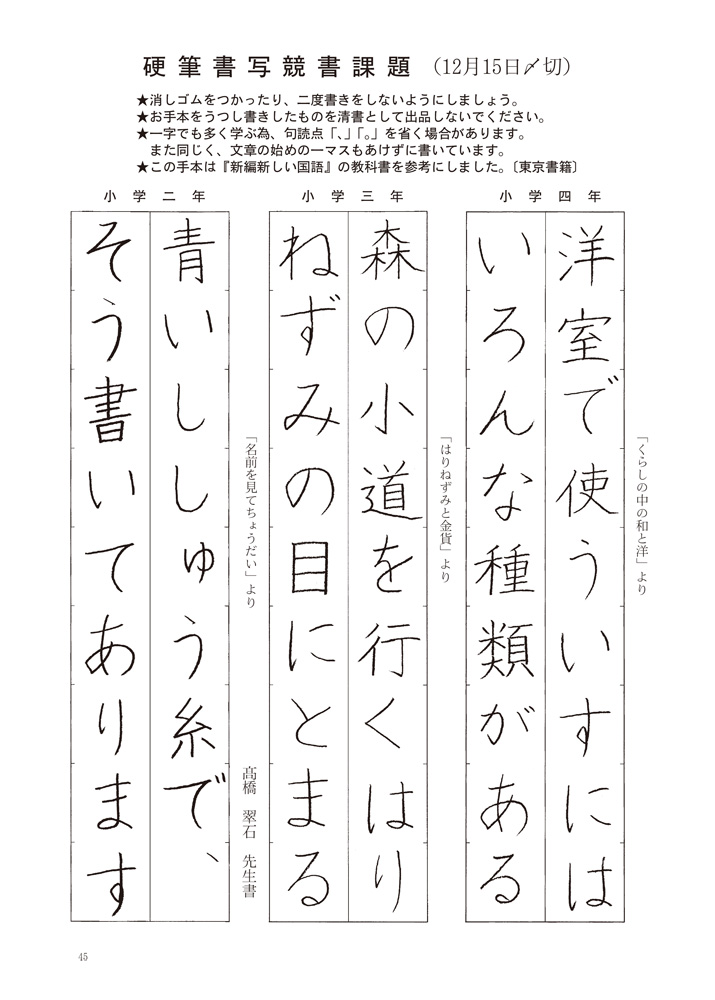 硬筆書写競書課題 (12月15日〆切)
★消しゴムをつかったり、二度書きをしないようにしましょう。
★お手本をうつし書きしたものを清書として出品しないでください。
★一字でも多く学ぶ為、句読点「、」「。」を省く場合があります。
また同じく、文章の始めの一マスもあけずに書いています。
★この手本は『新編新しい国語』の教科書を参考にしました。〔東京書籍〕
小学四年
洋室で使ういすには
いろんな種類がある
「くらしの中の和と洋」より
小学三年
森の小道を行くはり
ねずみの目にとまる
「はりねずみと金貨」より
小学二年
青いししゅう糸で、
そう書いてあります
「名前を見てちょうだい」より
髙橋 翠石 先生書
45